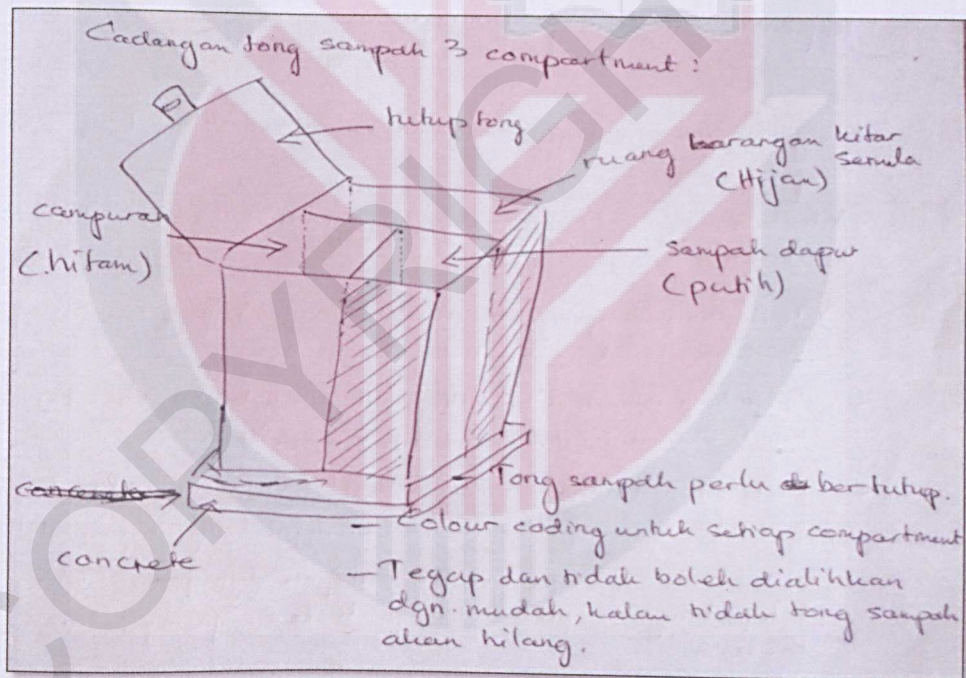 Cadangan tong sampah 3 compartment :
tutup tong
ruang barangan kitar
semula
(Hijau)
campuran
(hitam)
sampah dapur
(putih)
concrete
concrete
- Tong sampah perlu bertutup.
- Colour coding untuk setiap compartment
- Tegap dan tidak boleh dialihkan
dgn. mudah, kalau tidak tong sampah
akan hilang.
COPYRIGH